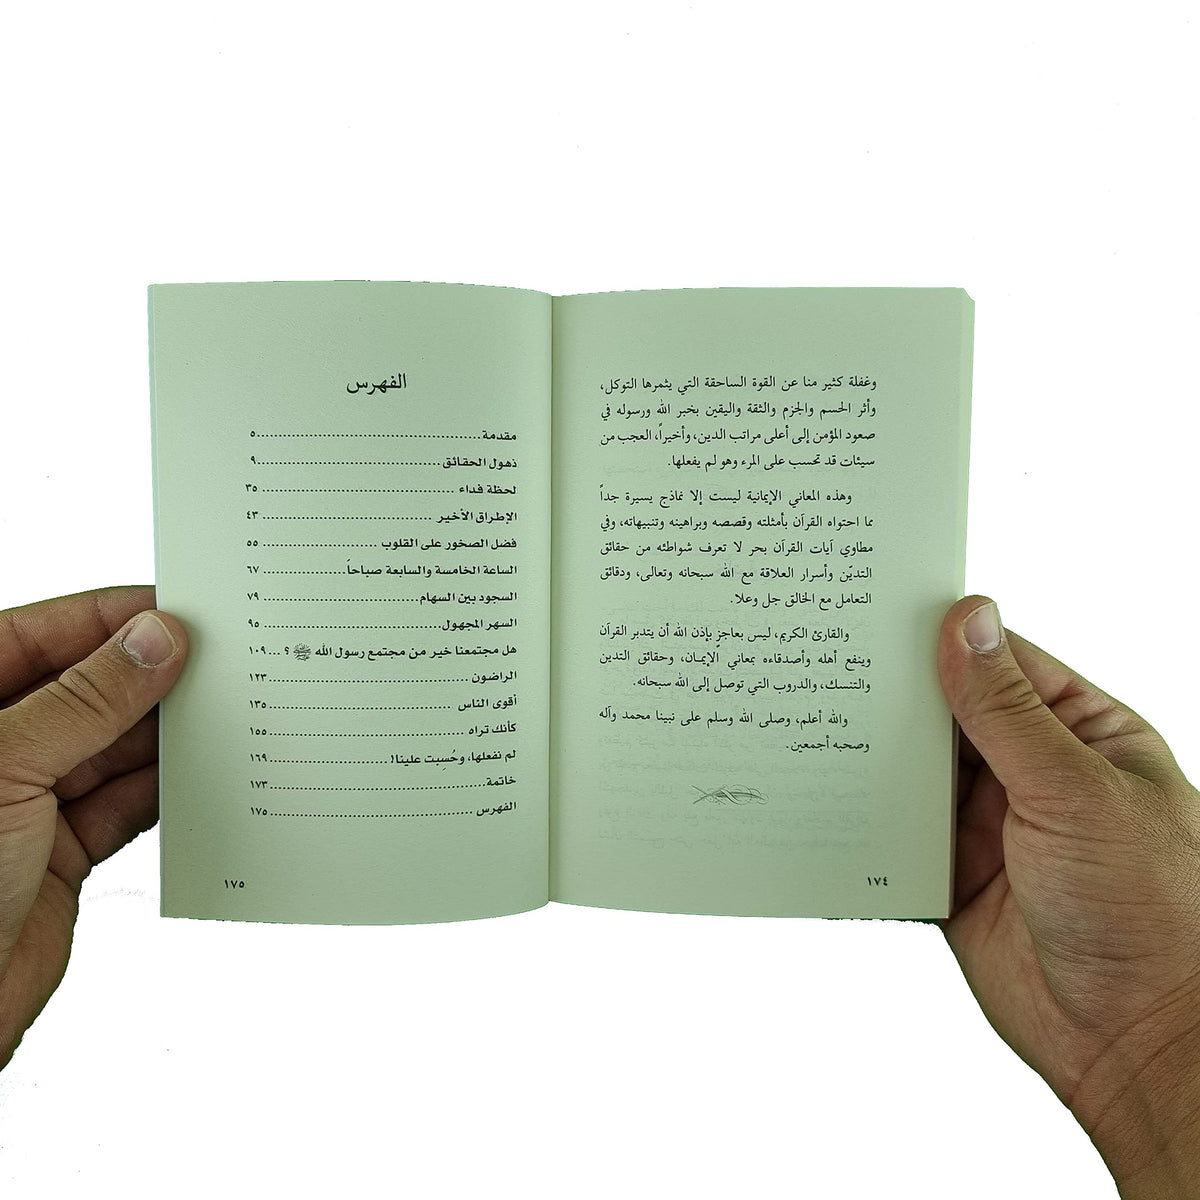 وغفلة كثير منا عن القوة الساحقة التي يثمرها التوكل،
وأثر الحسم والجزم والثقة واليقين بخبر الله ورسوله في
صعود المؤمن إلى أعلى مراتب الدين، وأخيراً، العجب من
سيئات قد تحسب على المرء وهو لم يفعلها.
وهذه المعاني الإيمانية ليست إلا نماذج يسيرة جداً
مما احتواه القرآن بأمثلته وقصصه وبراهينه وتنبيهاته، وفي
مطاوي آيات القرآن بحر لا تعرف شواطئه من حقائق
التديّن وأسرار العلاقة مع الله سبحانه وتعالى، ودقائق
التعامل مع الخالق جل وعلا.
والقارئ الكريم، ليس بعاجزٍ بإذن الله أن يتدبر القرآن
وينفع أهله وأصدقاءه بمعاني الإيمان، وحقائق التدين
والتنسك، والدروب التي توصل إلى الله سبحانه.
والله أعلم، وصلى الله وسلم على نبينا محمد وآله
وصحبه أجمعين.
١٧٤
الفهرس
مقدمة ........ ٥
ذهول الحقائق ........ ٩
لحظة فداء ........ ٣٥
الإطراق الأخير ........ ٤٣
فضل الصخور على القلوب ........ ٥٥
الساعة الخامسة والسابعة صباحاً ........ ٦٧
السجود بين السهام ........ ٧٩
السهر المجهول ........ ٩٥
هل مجتمعنا خير من مجتمع رسول الله ﷺ ؟ ... ١٠٩
الراضون ........ ١٢٣
أقوى الناس ........ ١٣٥
كأنك تراه ........ ١٥٥
لم نفعلها، وحُسِبت علينا! ........ ١٦٩
خاتمة ........ ١٧٣
الفهرس ........ ١٧٥
١٧٥